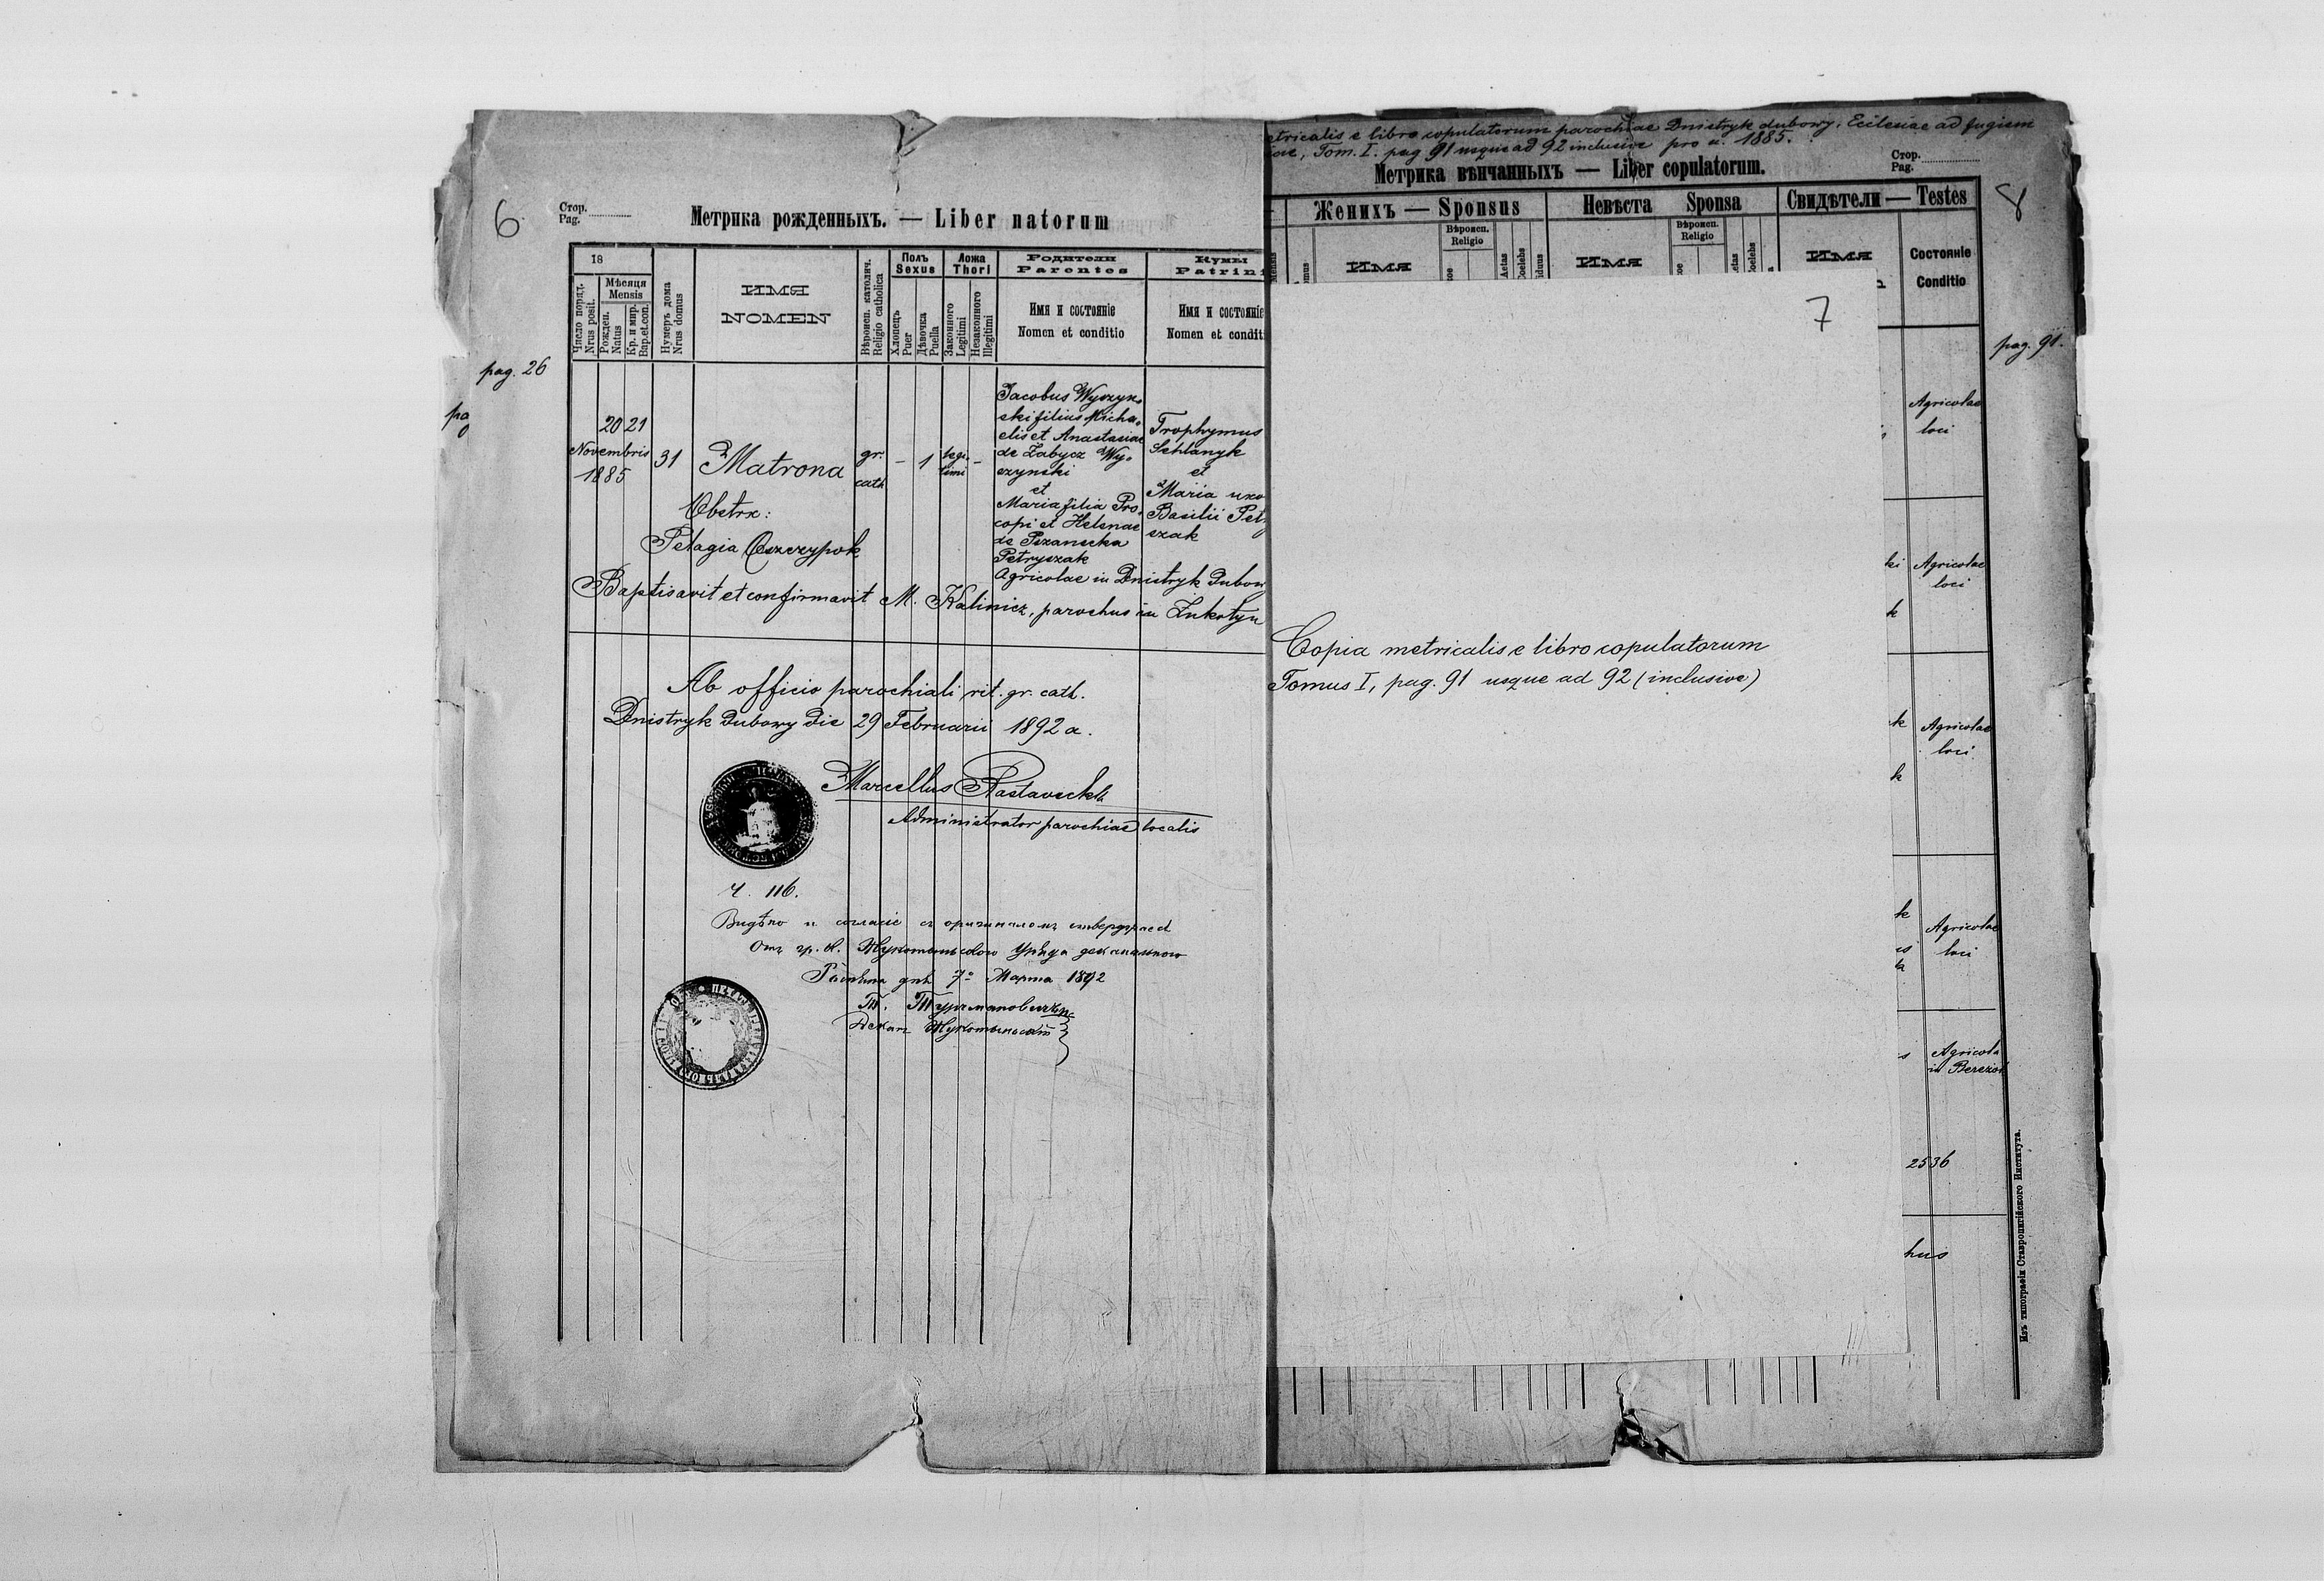 6
Стор.
Pag.
Метрика рожденныхъ. — Liber natorum
18
Число поряд.
Nrus posit.
Мѣсяця
Mensis
Рожден.
Natus
Кр. и мир.
Bap.et.con.
Нумеръ дома
Nrus domus
ИМЯ
NOMEN
Вѣроисп. католич.
Religio catholica
Полъ
Sexus
Хлопецъ
Puer
Дѣвочка
Puella
Ложа
Thori
Законного
Legitimi
Незаконного
Illegitimi
Родители
Parentes
Имя и состояніе
Nomen et conditio
Кумы
Patrini
Имя и состояніе
Nomen et condit
pag. 26
pa
20 21
Novembris
1885
31
Matrona
gr.
cath
–
1
legi-
timi
–
Jacobus Wyszyn-
ski filius Micha-
elis et Anastasiae
de Zabycz Wy-
szynski
et
Maria filia Pro-
copi et Helenae
de
Petryszak
Agricolae in Dnistryk Dubow
Trophymus
Schlanyk
et
Maria uxo
Basilii Pet
szak
Obetrx:
Pelagia Oszczypok
Baptisavit et confirmavit M. Kalinicz, parochus in Lukotyn
Ab officio parochiali rit. gr. cath.
Dnistryk Dubowy die 29 Februarii 1892 a.
Marcellus
Administrator parochiae localis
Ч. 116.
Видѣно и согласіе съ оригиналомъ
Отъ гр. к. Жукотинского Уряда деканального
дня 7º Марта 1892
Деканъ
etricalis e libro copulatorum parochiae Dnistryk dubowy, Ecclesiae ad
Tom. I. pag 91 usque ad 92 inclusive pro a. 1885.
Метрика вѣнчанныхъ — Liber copulatorum.
Стор.
Pag.
8
Женихъ — Sponsus
Невѣста Sponsa
Свидѣтели — Testes
Вѣроисп.
Religio
Aetas
Coelebs
ИМЯ
Вѣроисп.
Religio
ИМЯ
ИМЯ
Состояніе
Conditio
7
pag. 91.
Agricolae
loci
Copia metricalis e libro copulatorum
Tomus I, pag. 91 usque ad 92 (inclusive)
ki
Agricolae
loci
k
k
Agricolae
loci
k
k
Agricolae
loci
Agricola
in Berezow
2536
hus
Изъ типографіи Ставропигійского Института.